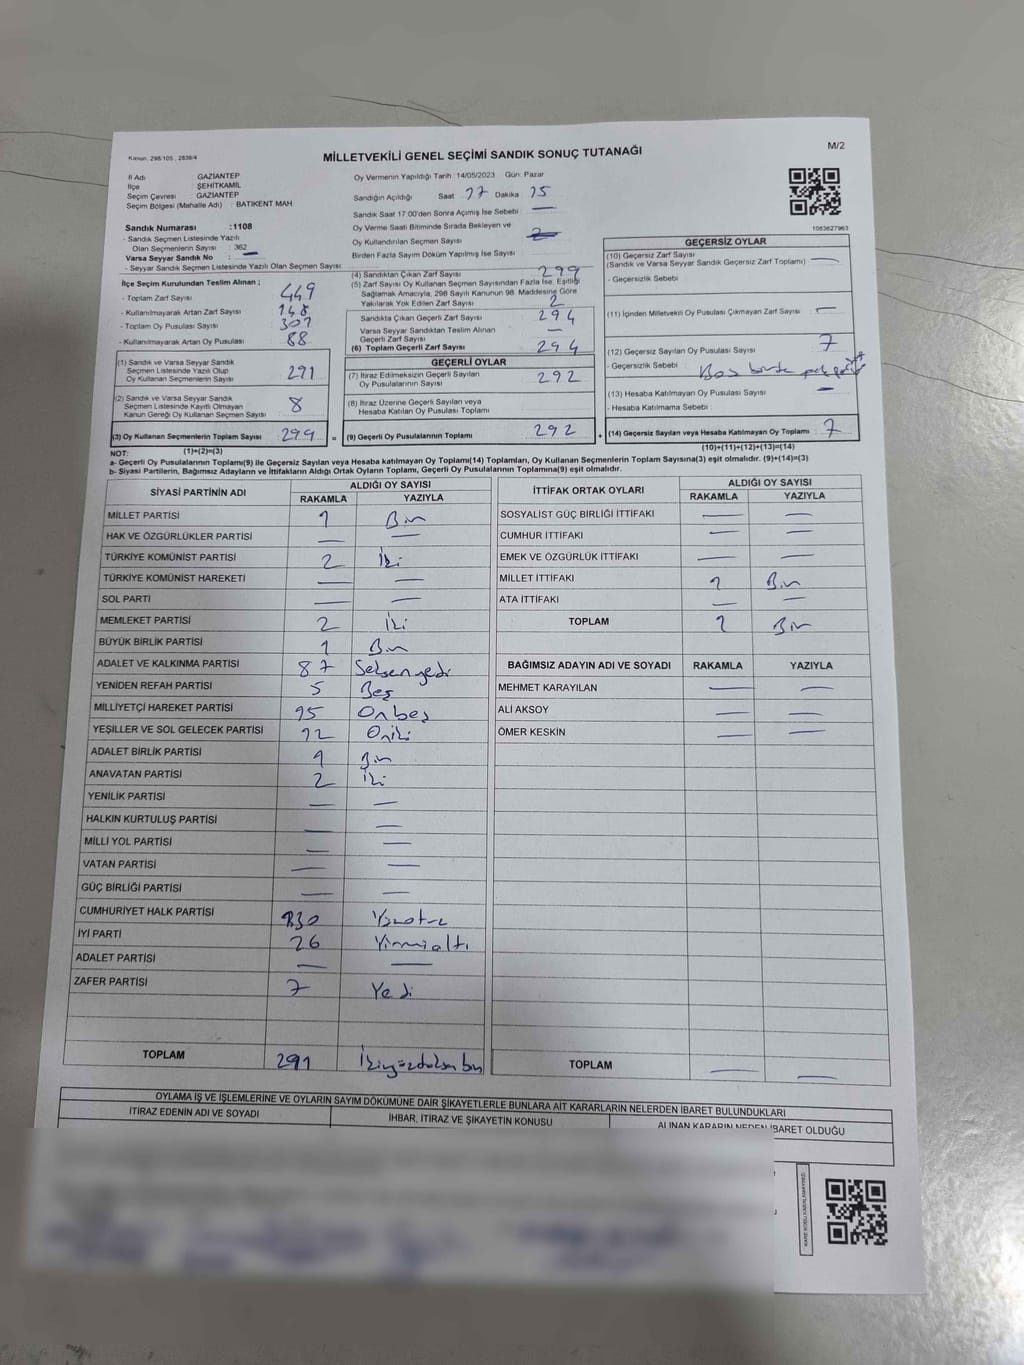 Kanun: 298/105 , 2839/4
MİLLETVEKİLİ GENEL SEÇİMİ SANDIK SONUÇ TUTANAĞI
M/2
İl Adı GAZİANTEP
İlçe ŞEHİTKAMİL
Seçim Çevresi GAZİANTEP
Seçim Bölgesi (Mahalle Adı) : BATIKENT MAH
Oy Vermenin Yapıldığı Tarih : 14/05/2023 Gün: Pazar
Sandığın Açıldığı Saat 17 Dakika 15
Sandık Saat 17:00'den Sonra Açımış İse Sebebi : —
Oy Verme Saati Bitiminde Sırada Bekleyen ve
Oy Kullandırılan Seçmen Sayısı
Birden Fazla Sayım Döküm Yapılmış İse Sayısı :
1083627963
Sandık Numarası :1108
- Sandık Seçmen Listesinde Yazılı
Olan Seçmenlerin Sayısı : 362
Varsa Seyyar Sandık No : —
- Seyyar Sandık Seçmen Listesinde Yazılı Olan Seçmen Sayısı:
İlçe Seçim Kurulundan Teslim Alınan ;
- Toplam Zarf Sayısı : 449
- Kullanılmayarak Artan Zarf Sayısı : 148
- Toplam Oy Pusulası Sayısı :
- Kullanılmayarak Artan Oy Pusulası : 88
(1) Sandık ve Varsa Seyyar Sandık
Seçmen Listesinde Yazılı Olup
Oy Kullanan Seçmenlerin Sayısı 291
(2) Sandık ve Varsa Seyyar Sandık
Seçmen Listesinde Kayıtlı Olmayan
Kanun Gereği Oy Kullanan Seçmen Sayısı 8
(3) Oy Kullanan Seçmenlerin Toplam Sayısı 299 =
(1)+(2)=(3)
(4) Sandıktan Çıkan Zarf Sayısı 299
(5) Zarf Sayısı Oy Kullanan Seçmen Sayısından Fazla İse, Eşitliği
Sağlamak Amacıyla, 298 Sayılı Kanunun 98. Maddesine Göre
Yakılarak Yok Edilen Zarf Sayısı 2
Sandıkta Çıkan Geçerli Zarf Sayısı 294
Varsa Seyyar Sandıktan Teslim Alınan
Geçerli Zarf Sayısı —
(6) Toplam Geçerli Zarf Sayısı 294
GEÇERLİ OYLAR
(7) İtiraz Edilmeksizin Geçerli Sayılan
Oy Pusulalarının Sayısı 292
(8) İtiraz Üzerine Geçerli Sayılan veya
Hesaba Katılan Oy Pusulası Toplamı
(9) Geçerli Oy Pusulalarının Toplamı 292 +
GEÇERSİZ OYLAR
(10) Geçersiz Zarf Sayısı
(Sandık ve Varsa Seyyar Sandık Geçersiz Zarf Toplamı) —
- Geçersizlik Sebebi :
(11) İçinden Milletvekili Oy Pusulası Çıkmayan Zarf Sayısı : —
(12) Geçersiz Sayılan Oy Pusulası Sayısı : 7
- Geçersizlik Sebebi :
(13) Hesaba Katılmayan Oy Pusulası Sayısı : —
- Hesaba Katılmama Sebebi :
(14) Geçersiz Sayılan veya Hesaba Katılmayan Oy Toplamı : 7
(10)+(11)+(12)+(13)=(14)
NOT:
a- Geçerli Oy Pusulası Toplamı(9) ile Geçersiz Sayılan veya Hesaba katılmayan Oy Toplamı(14) Toplamları, Oy Kullanan Seçmenlerin Toplam Sayısına(3) eşit olmalıdır. (9)+(14)=(3)
b- Siyasi Partilerin, Bağımsız Adayların ve İttifakların Aldığı Ortak Oyların Toplamı, Geçerli Oy Pusulalarının Toplamına(9) eşit olmalıdır.
SİYASİ PARTİNİN ADI ALDIĞI OY SAYISI
RAKAMLA YAZIYLA
MİLLET PARTİSİ 1 Bir
HAK VE ÖZGÜRLÜKLER PARTİSİ — —
TÜRKİYE KOMÜNİST PARTİSİ 2 İki
TÜRKİYE KOMÜNİST HAREKETİ — —
SOL PARTİ — —
MEMLEKET PARTİSİ 2 İki
BÜYÜK BİRLİK PARTİSİ 1 Bir
ADALET VE KALKINMA PARTİSİ 87 Seksenyedi
YENİDEN REFAH PARTİSİ 5 Beş
MİLLİYETÇİ HAREKET PARTİSİ 15 Onbeş
YEŞİLLER VE SOL GELECEK PARTİSİ 12 Oniki
ADALET BİRLİK PARTİSİ 1 Bir
ANAVATAN PARTİSİ 2 İki
YENİLİK PARTİSİ — —
HALKIN KURTULUŞ PARTİSİ — —
MİLLİ YOL PARTİSİ — —
VATAN PARTİSİ — —
GÜÇ BİRLİĞİ PARTİSİ — —
CUMHURİYET HALK PARTİSİ 130 Yüzotuz
İYİ PARTİ 26 Yirmialtı
ADALET PARTİSİ — —
ZAFER PARTİSİ 7 Yedi
TOPLAM 291 İkiyüzdoksanbir
İTTİFAK ORTAK OYLARI ALDIĞI OY SAYISI
RAKAMLA YAZIYLA
SOSYALİST GÜÇ BİRLİĞİ İTTİFAKI — —
CUMHUR İTTİFAKI — —
EMEK VE ÖZGÜRLÜK İTTİFAKI — —
MİLLET İTTİFAKI 1 Bir
ATA İTTİFAKI — —
TOPLAM 1 Bir
BAĞIMSIZ ADAYIN ADI VE SOYADI RAKAMLA YAZIYLA
MEHMET KARAYILAN — —
ALİ AKSOY — —
ÖMER KESKİN — —
TOPLAM — —
OYLAMA İŞ VE İŞLEMLERİNE VE OYLARIN SAYIM DÖKÜMÜNE DAİR ŞİKAYETLERLE BUNLARA AİT KARARLARIN NELERDEN İBARET BULUNDUKLARI
İTİRAZ EDENİN ADI VE SOYADI İHBAR, İTİRAZ VE ŞİKAYETİN KONUSU ALINAN KARARIN NEDEN İBARET OLDUĞU
KARE KODU KARALAMAYINIZ!